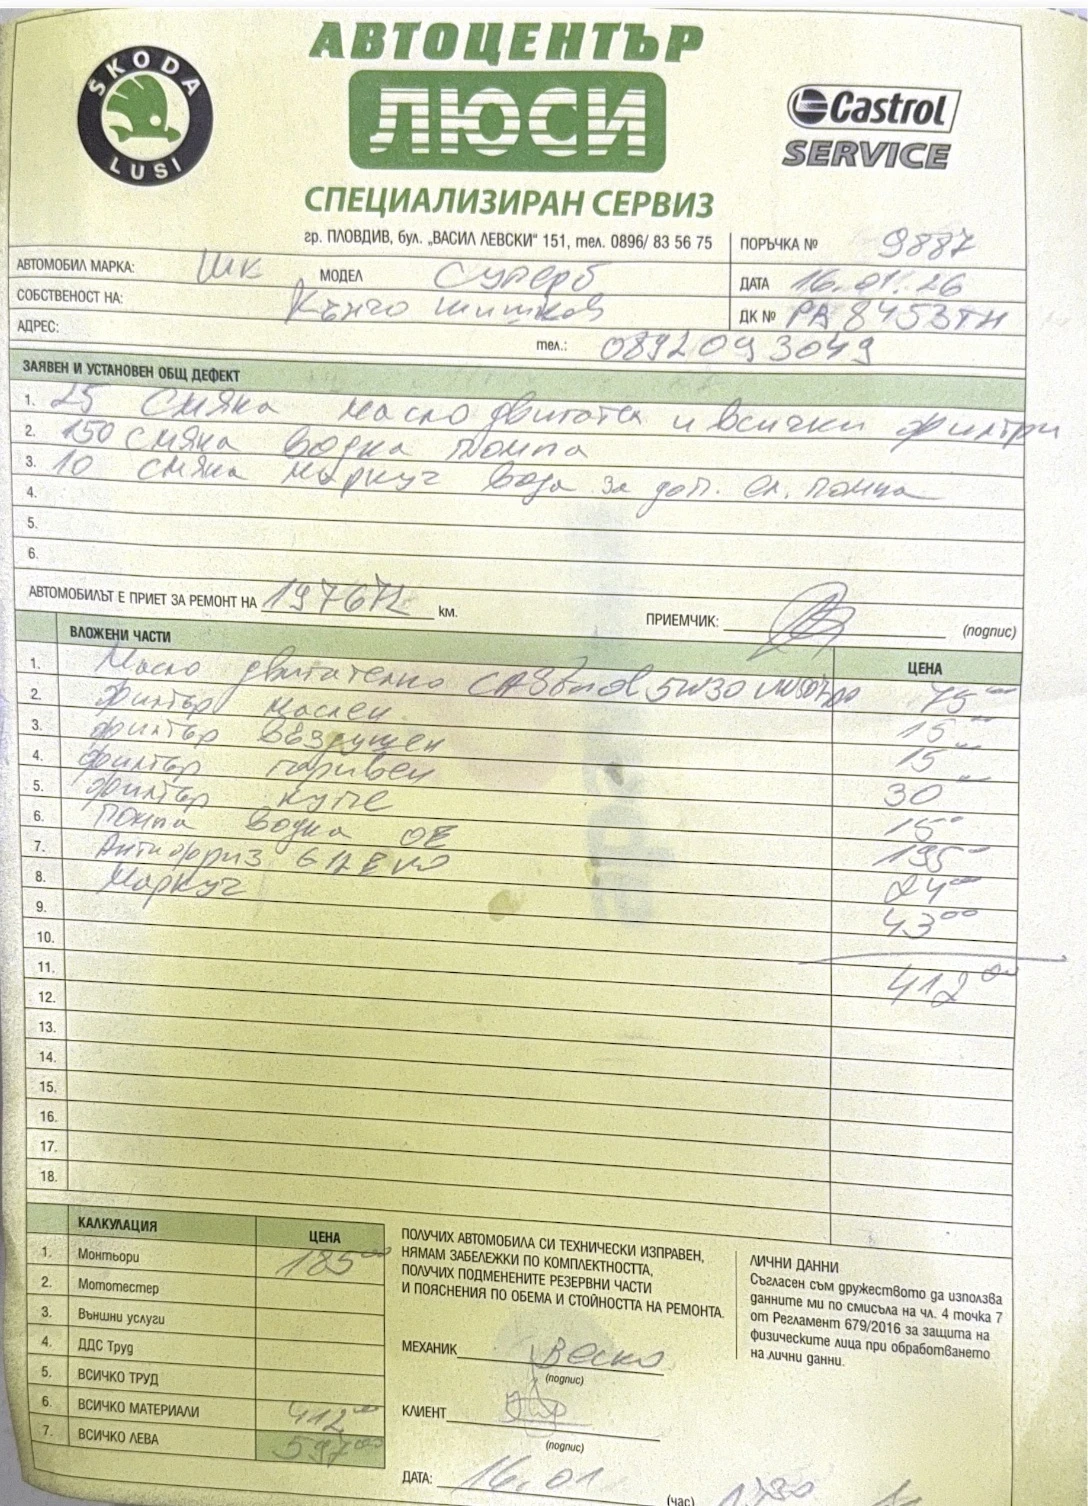 АВТОЦЕНТЪР
ŠKODA
LUSI
ЛЮСИ
Castrol
SERVICE
СПЕЦИАЛИЗИРАН СЕРВИЗ
гр. ПЛОВДИВ, бул. „ВАСИЛ ЛЕВСКИ“ 151, тел. 0896/ 83 56 75
ПОРЪЧКА № 9887
АВТОМОБИЛ МАРКА: Шк МОДЕЛ Суперб
ДАТА 16.01.26
СОБСТВЕНОСТ НА: Кънчо Шишков
ДК № РА 8453ТН
АДРЕС:
тел.: 0892093049
ЗАЯВЕН И УСТАНОВЕН ОБЩ ДЕФЕКТ
1. 25 смяна масло двигател и всички филтри
2. 150 смяна водна помпа
3. 10 смяна маркуч вода за доп. ел. помпа
4.
5.
6.
АВТОМОБИЛЪТ Е ПРИЕТ ЗА РЕМОНТ НА 197672 км.
ПРИЕМЧИК: (подпис)
ВЛОЖЕНИ ЧАСТИ ЦЕНА
1. Масло двигателно 5W30 75 00
2. Филтър маслен 15 00
3. Филтър въздушен 15 00
4. Филтър горивен 30 00
5. Филтър купе 15 00
6. Помпа водна ОЕ 195 00
7. Антифриз G12 EVO 24 00
8. Маркуч 43 00
9.
10.
11. 412 00
12.
13.
14.
15.
16.
17.
18.
КАЛКУЛАЦИЯ ЦЕНА
1. Монтьори 185 00
2. Мототестер
3. Външни услуги
4. ДДС Труд
5. ВСИЧКО ТРУД
6. ВСИЧКО МАТЕРИАЛИ 412 00
7. ВСИЧКО ЛЕВА 597 00
ПОЛУЧИХ АВТОМОБИЛА СИ ТЕХНИЧЕСКИ ИЗПРАВЕН,
НЯМАМ ЗАБЕЛЕЖКИ ПО КОМПЛЕКТНОСТТА,
ПОЛУЧИХ ПОДМЕНЕНИТЕ РЕЗЕРВНИ ЧАСТИ
И ПОЯСНЕНИЯ ПО ОБЕМА И СТОЙНОСТТА НА РЕМОНТА.
МЕХАНИК Веско
(подпис)
КЛИЕНТ
(подпис)
ДАТА: 16.01 (час) 1730
ЛИЧНИ ДАННИ
Съгласен съм дружеството да използва
данните ми по смисъла на чл. 4 точка 7
от Регламент 679/2016 за защита на
физическите лица при обработването
на лични данни.